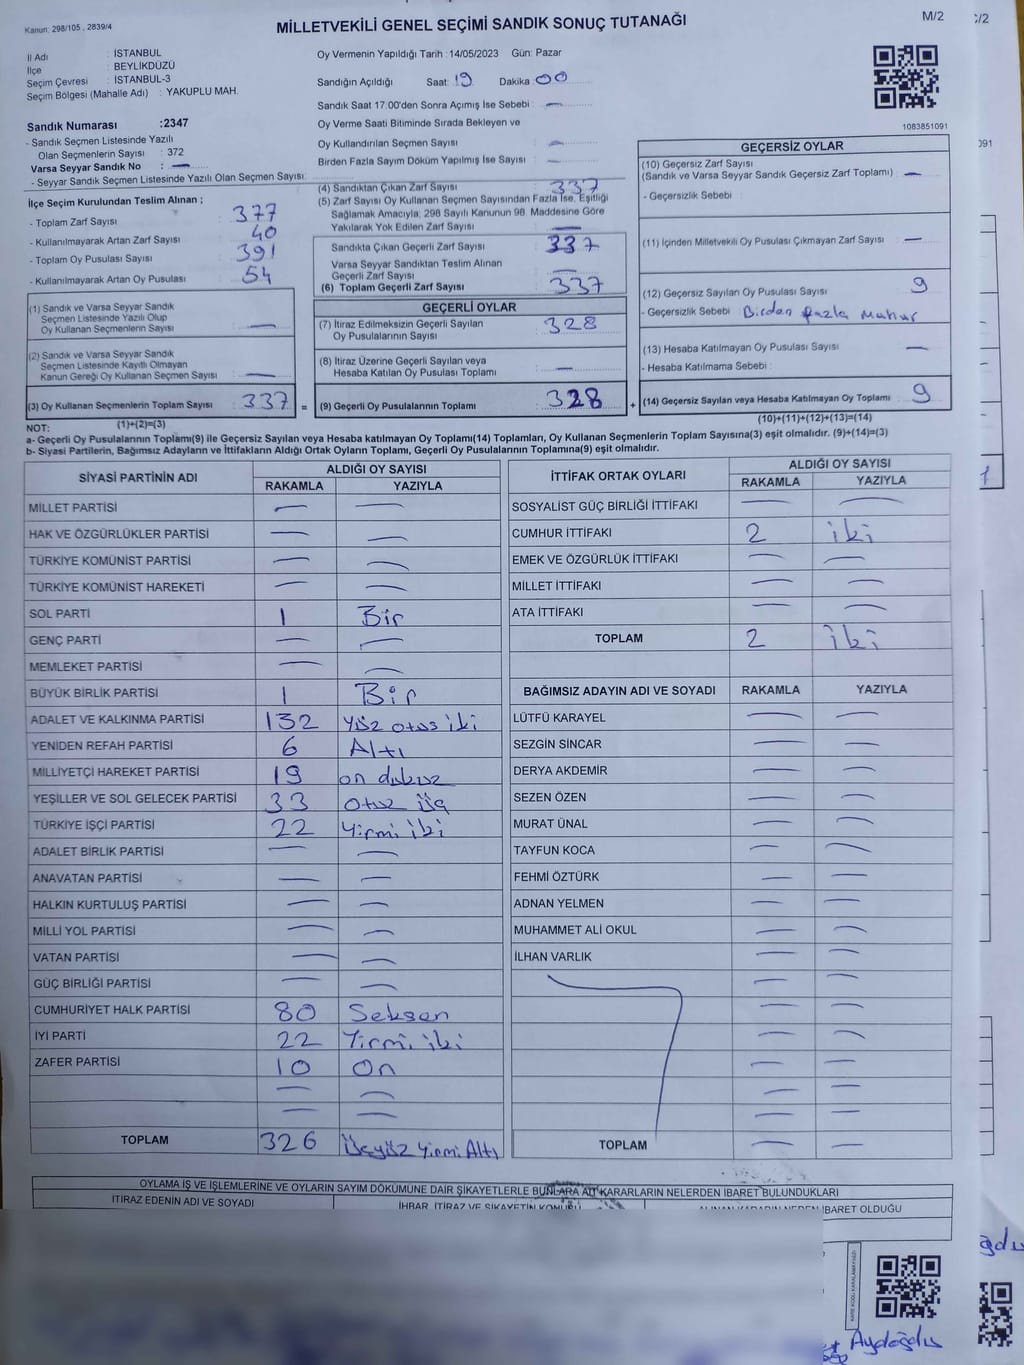 Kanun: 298/105 , 2839/4
MİLLETVEKİLİ GENEL SEÇİMİ SANDIK SONUÇ TUTANAĞI
M/2
/2
İl Adı : İSTANBUL
İlçe : BEYLİKDÜZÜ
Seçim Çevresi : İSTANBUL-3
Seçim Bölgesi (Mahalle Adı) : YAKUPLU MAH.
Oy Vermenin Yapıldığı Tarih : 14/05/2023 Gün: Pazar
Sandığın Açıldığı Saat: 19 Dakika 00
Sandık Saat 17:00'den Sonra Açılmış İse Sebebi : —
Oy Verme Saati Bitiminde Sırada Bekleyen ve
Oy Kullandırılan Seçmen Sayısı : —
Birden Fazla Sayım Döküm Yapılmış İse Sayısı : —
1083851091
Sandık Numarası :2347
- Sandık Seçmen Listesinde Yazılı
Olan Seçmenlerin Sayısı : 372
Varsa Seyyar Sandık No : —
- Seyyar Sandık Seçmen Listesinde Yazılı Olan Seçmen Sayısı:
İlçe Seçim Kurulundan Teslim Alınan ;
- Toplam Zarf Sayısı 377
- Kullanılmayarak Artan Zarf Sayısı 40
- Toplam Oy Pusulası Sayısı 391
- Kullanılmayarak Artan Oy Pusulası 54
(1) Sandık ve Varsa Seyyar Sandık
Seçmen Listesinde Yazılı Olup
Oy Kullanan Seçmenlerin Sayısı —
(2) Sandık ve Varsa Seyyar Sandık
Seçmen Listesinde Kayıtlı Olmayan
Kanun Gereği Oy Kullanan Seçmen Sayısı —
(3) Oy Kullanan Seçmenlerin Toplam Sayısı 337 =
(4) Sandıktan Çıkan Zarf Sayısı 337
(5) Zarf Sayısı Oy Kullanan Seçmen Sayısından Fazla İse, Eşitliği
Sağlamak Amacıyla, 298 Sayılı Kanunun 98. Maddesine Göre
Yakılarak Yok Edilen Zarf Sayısı —
Sandıkta Çıkan Geçerli Zarf Sayısı 337
Varsa Seyyar Sandıktan Teslim Alınan
Geçerli Zarf Sayısı —
(6) Toplam Geçerli Zarf Sayısı 337
GEÇERLİ OYLAR
(7) İtiraz Edilmeksizin Geçerli Sayılan
Oy Pusulalarının Sayısı 328
(8) İtiraz Üzerine Geçerli Sayılan veya
Hesaba Katılan Oy Pusulası Toplamı —
(9) Geçerli Oy Pusulalarının Toplamı 328 +
GEÇERSİZ OYLAR
(10) Geçersiz Zarf Sayısı
(Sandık ve Varsa Seyyar Sandık Geçersiz Zarf Toplamı) —
- Geçersizlik Sebebi :
(11) İçinden Milletvekili Oy Pusulası Çıkmayan Zarf Sayısı —
(12) Geçersiz Sayılan Oy Pusulası Sayısı 9
- Geçersizlik Sebebi : Birden fazla Muhur
(13) Hesaba Katılmayan Oy Pusulası Sayısı —
- Hesaba Katılmama Sebebi :
(14) Geçersiz Sayılan veya Hesaba Katılmayan Oy Toplamı 9
NOT: (1)+(2)=(3)
(10)+(11)+(12)+(13)=(14)
a- Geçerli Oy Pusulalarının Toplamı(9) ile Geçersiz Sayılan veya Hesaba katılmayan Oy Toplamı(14) Toplamları, Oy Kullanan Seçmenlerin Toplam Sayısına(3) eşit olmalıdır. (9)+(14)=(3)
b- Siyasi Partilerin, Bağımsız Adayların ve İttifakların Aldığı Ortak Oyların Toplamı, Geçerli Oy Pusulalarının Toplamına(9) eşit olmalıdır.
SİYASİ PARTİNİN ADI ALDIĞI OY SAYISI
RAKAMLA YAZIYLA
MİLLET PARTİSİ — —
HAK VE ÖZGÜRLÜKLER PARTİSİ — —
TÜRKİYE KOMÜNİST PARTİSİ — —
TÜRKİYE KOMÜNİST HAREKETİ — —
SOL PARTİ 1 Bir
GENÇ PARTİ — —
MEMLEKET PARTİSİ — —
BÜYÜK BİRLİK PARTİSİ 1 Bir
ADALET VE KALKINMA PARTİSİ 132 Yüz otuz iki
YENİDEN REFAH PARTİSİ 6 Altı
MİLLİYETÇİ HAREKET PARTİSİ 19 on dokuz
YEŞİLLER VE SOL GELECEK PARTİSİ 33 Otuz üç
TÜRKİYE İŞÇİ PARTİSİ 22 Yirmi iki
ADALET BİRLİK PARTİSİ — —
ANAVATAN PARTİSİ — —
HALKIN KURTULUŞ PARTİSİ — —
MİLLİ YOL PARTİSİ — —
VATAN PARTİSİ — —
GÜÇ BİRLİĞİ PARTİSİ — —
CUMHURİYET HALK PARTİSİ 80 Seksen
İYİ PARTİ 22 Yirmi iki
ZAFER PARTİSİ 10 On
— —
— —
TOPLAM 326 Üçyüz Yirmi Altı
İTTİFAK ORTAK OYLARI ALDIĞI OY SAYISI
RAKAMLA YAZIYLA
SOSYALİST GÜÇ BİRLİĞİ İTTİFAKI — —
CUMHUR İTTİFAKI 2 iki
EMEK VE ÖZGÜRLÜK İTTİFAKI — —
MİLLET İTTİFAKI — —
ATA İTTİFAKI — —
TOPLAM 2 iki
BAĞIMSIZ ADAYIN ADI VE SOYADI RAKAMLA YAZIYLA
LÜTFÜ KARAYEL — —
SEZGİN SİNCAR — —
DERYA AKDEMİR — —
SEZEN ÖZEN — —
MURAT ÜNAL — —
TAYFUN KOCA — —
FEHMİ ÖZTÜRK — —
ADNAN YELMEN — —
MUHAMMET ALİ OKUL — —
İLHAN VARLIK — —
— —
— —
— —
— —
— —
— —
TOPLAM — —
OYLAMA İŞ VE İŞLEMLERİNE VE OYLARIN SAYIM DÖKÜMÜNE DAİR ŞİKAYETLERLE BUNLARA AİT KARARLARIN NELERDEN İBARET BULUNDUKLARI
İTİRAZ EDENİN ADI VE SOYADI
İHBAR, İTİRAZ VE ŞİKAYETİN KONUSU
İBARET OLDUĞU
Aydoğdu